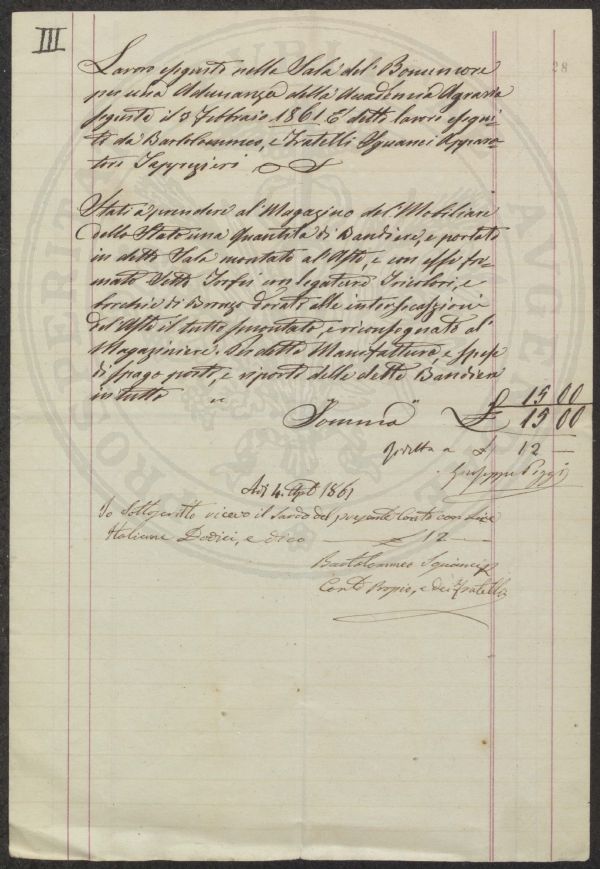 III
28
Lavoro eseguito nella Sala del Buonumore
per una Adunanza della Accademia Agraria
seguita il 3 Febbraio 1861 E detto lavoro esegui-
to da Bartolommeo, e Fratelli Sguanci Appara-
tori Tappezzieri
Stati a prendere al Magazino del Mobiliare
dello Stato una Quantità di Bandiere, e portate
in detta Sala montato al Aste, e con esse for-
mato Sette Trofei con legature Tricolori, e
borchie di Bronzo dorato alle intersecazioni
del Aste il tutto smontato, e riconsegnato al
Magaziniere. Per detta Manifattura, e spese
di spago porti, e riporto delle dette Bandiere
in tutto £ 15 00
Somma £ 15 00
Ridotta a £ 12 —
Giuseppe Poggi
Adì 4. 1861
Io Sottoscritto ricevo il Saldo del presente Conto con Lire
Italiane Dodici, e dico £ 12
Bartolommeo Sguanci
Conto Propio, e dei Fratelli